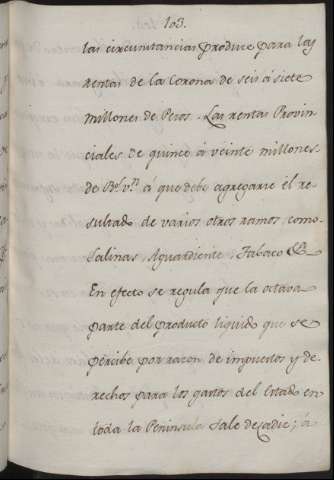 103.
las circunstancias produce para las
rentas de la Corona de seis á siete
millones de Pesos. Las rentas Provin
ciales de quince á veinte millones
de Rs. vn. á que debe agregarse el re
sultado de varios otros ramos, como
Salinas, Aguardiente, Tabaco &c.
En efecto se regula que la octava
parte del producto liquido que se
percibe por razon de impuestos y de
rechos para los gastos del Estado en
toda la Peninsula sale de Cadiz; á